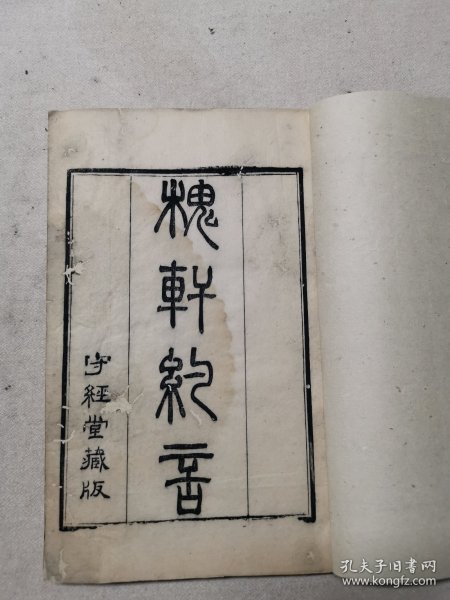 槐軒約言
守經堂藏版
孔夫子旧书网
www.kongfz.com